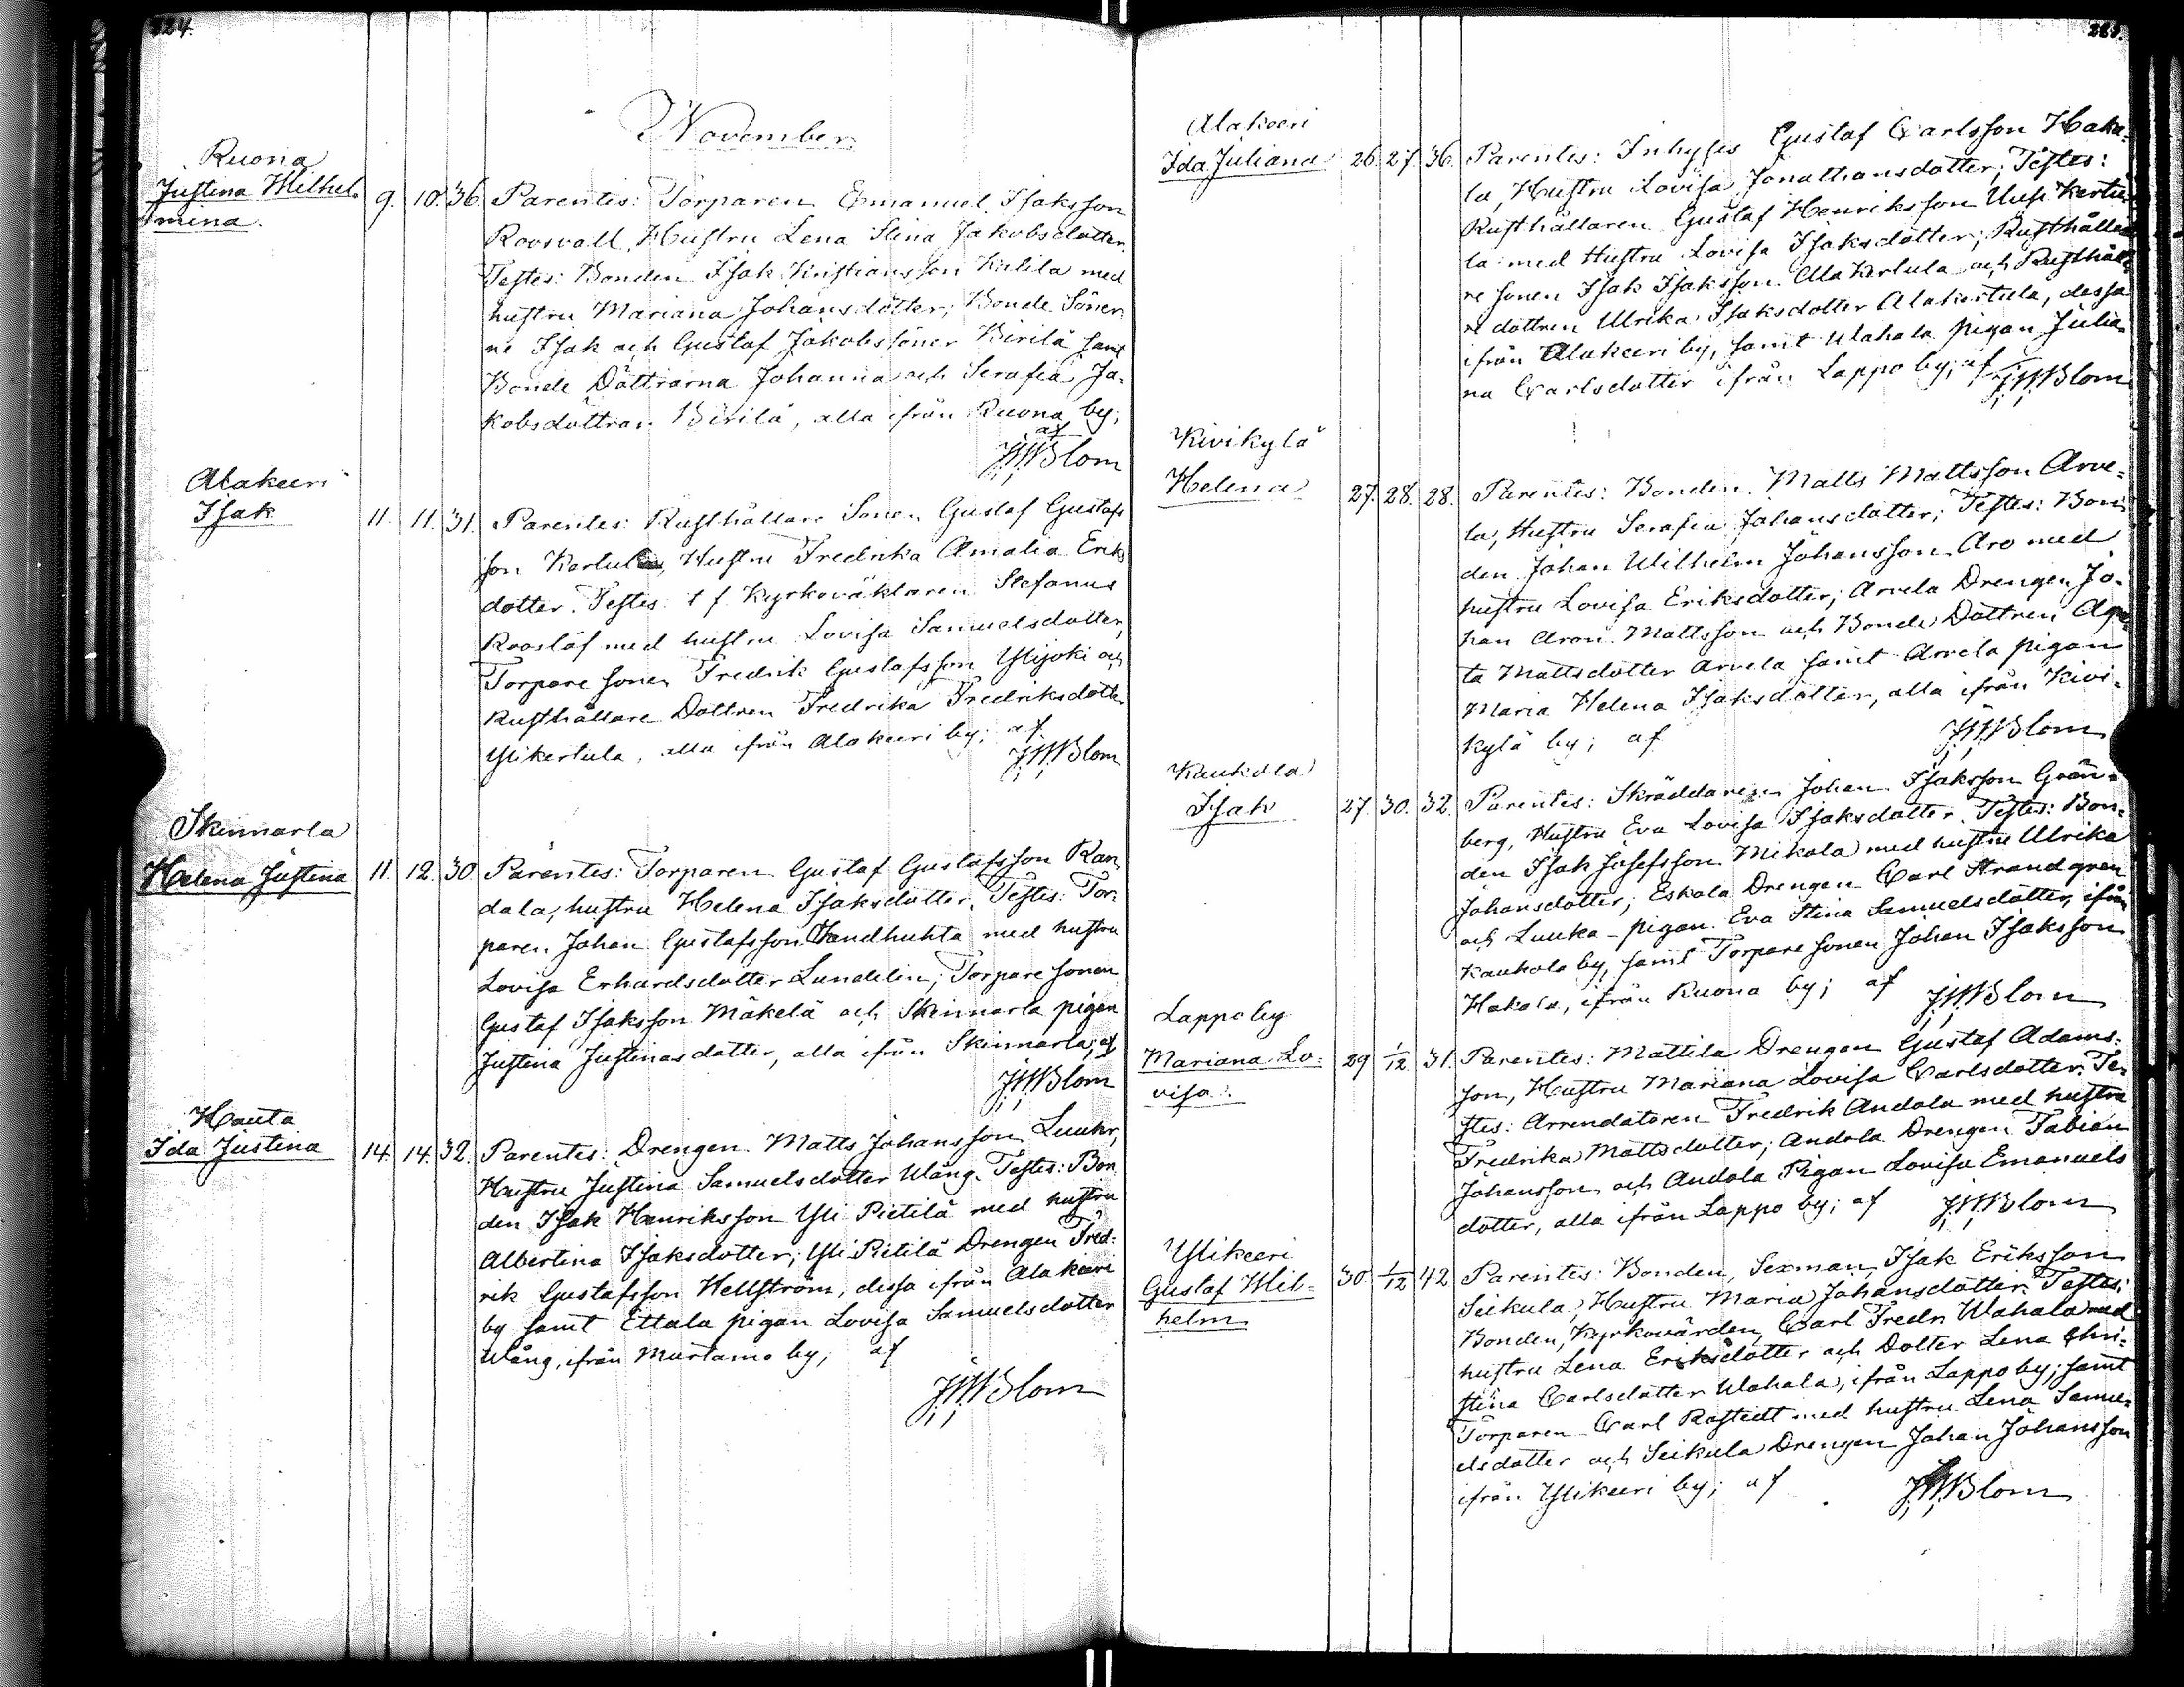 224.
November
Ruona
Justina Wilhel-
mina.
9. 10. 36. Parentes: Torparen Emanuel Isaksson
Roosvall, Hustru Lena Stina Jakobsdotter.
Testes: Bonden Isak Kristiansson Kulila med
hustru Mariana Johansdotter; Bonde Söner-
ne Isak och Gustaf Jakobssöner Birilä samt
Bonde Döttrarna Johanna och Serafia Ja-
kobsdöttrar Birilä, alla ifrån Ruona by;
af
JWBlom
Alakeeri
Isak
11. 11. 31. Parentes: Rusthållare Sonen Gustaf Gustafs
son Kertula, Hustru Fredrika Amalia Eriks
dotter. Testes: f f Kyrkoväktaren Stefanus
Rooslöf med hustru Lovisa Samuelsdotter,
Torpare sonen Fredrik Gustafsson Ylijoki och
Rusthållare Dottren Fredrika Fredriksdotter
Ylikertula, alla ifrån Alakeeri by; af
JWBlom
Skinnarla
Helena Justina
11. 12. 30. Parentes: Torparen Gustaf Gustafsson Ran
dala, hustru Helena Isaksdotter. Testes: Tor-
paren Johan Gustafsson Sandhuhta med hustru
Lovisa Erhardsdotter Lundelin; Torpare sonen
Gustaf Isaksson Mäkelä och Skinnarla pigan
Justina Justinasdotter, alla ifrån Skinnarla; af
JWBlom
Hauta
Ida Justina
14. 14. 32. Parentes: Drengen Matts Johansson Luukr,
Hustru Justina Samuelsdotter Wång. Testes: Bon
den Isak Henriksson Yli Pietilä med hustru
Albertina Isaksdotter; Yli Pietilä Drengen Fred-
rik Gustafsson Hellström, dessa ifrån Alakeeri
by samt Ettala pigan Lovisa Samuelsdotter
Wång, ifrån Murtamo by; af
JWBlom
225.
Alakeeri
Ida Juliana
26. 27. 36. Parentes: Inhyses Gustaf Carlsson Haka-
la, Hustru Lovisa Jonathansdotter; Testes:
Rusthållaren Gustaf Henriksson Uusi Kertu-
la med Hustru Lovisa Isaksdotter; Rusthålla-
re sonen Isak Isaksson Ala Kertula och Rusthålla-
re dottren Ulrika Isaksdotter Alakertula, dessa
ifrån Alakeeri by, samt Wahala pigan Julia-
na Carlsdotter ifrån Lappo by; af
JWBlom
Kivikylä
Helena
27. 28. 28. Parentes: Bonden Matts Mattsson Arve-
la, Hustru Serafia Johansdotter; Testes: Bon-
den Johan Wilhelm Johansson Aro med
hustru Lovisa Eriksdotter; Arvela Drengen Jo-
han Aron Mattsson och Bonde Dottren Aga-
ta Mattsdotter Arvela samt Arvela pigan
Maria Helena Isaksdotter, alla ifrån Kivi-
kylä by; af
JWBlom
Kaukola
Isak
27. 30. 32. Parentes: Skräddaren Johan Isaksson Grön-
berg, Hustru Eva Lovisa Isaksdotter. Testes: Bon-
den Isak Josefsson Mikola med hustru Ulrika
Johansdotter; Eskola Drengen Carl Strandgren
och Luuka-pigan Eva Stina Samuelsdotter, ifrån
Kaukola by, samt Torpare sonen Johan Isaksson
Hakala, ifrån Ruona by; af
JWBlom
Lappo by
Mariana Lo-
visa.
29 1/12 31. Parentes: Mattila Drengen Gustaf Adams-
son, Hustru Mariana Lovisa Carlsdotter. Te-
stes: Arrendatoren Fredrik Andola med hustru
Fredrika Mattsdotter; Andola Drengen Fabian
Johansson och Andola Pigan Lovisa Emanuels
dotter, alla ifrån Lappo by; af
JWBlom
Ylikeeri
Gustaf Wil-
helm
30 1/12 42 Parentes: Bonden, Sexman, Isak Eriksson
Seikula, Hustru Maria Johansdotter. Testes:
Bonden, Kyrkovärden, Carl Fredr. Wahala med
hustru Lena Eriksdotter och Dotter Lena Chri-
stina Carlsdotter Wahala, ifrån Lappo by; samt
Torparen Carl Rostedt med hustru Lena Samu-
elsdotter och Seikula Drengen Johan Johansson
ifrån Ylikeeri by; af
JWBlom